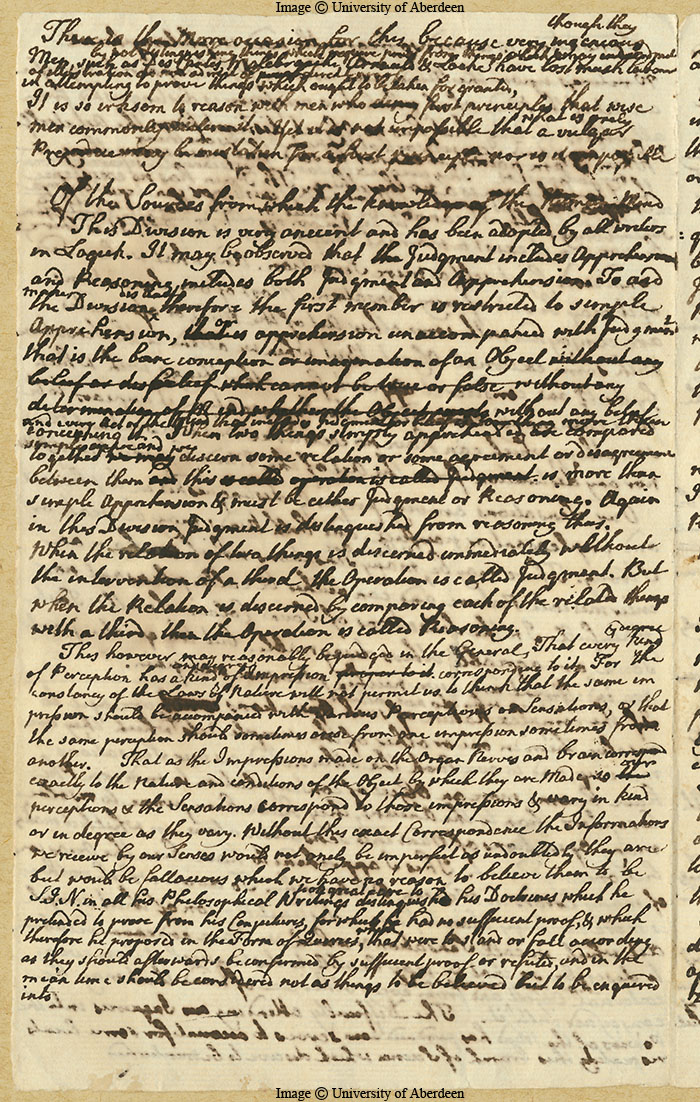 Image © University of Aberdeen
though they
There is the more occasion for this, because very ingenious
by not distinguishing things which require proof from things which
Men, such as Des Cartes, Malebranche, Arnauld & Locke have lost much labour
of illustration
in attempting to prove things which ought to be taken for granted,
It is so irksom to reason with men who deny first principles that wise
what is
men commonly decline it. Yet it is not impossible that a vulgar
Prejudice may be mistaken for a first principle nor is it impossible
Of the Sources from which the knowledge of the Mind
This Division is very ancient and has been adopted by all writers
in Logick. It may be observed that the Judgment includes Apprehension
and Reasoning includes both Judgment and Apprehension. To aid
the Division therefore the first member is restricted to simple
Apprehension, that is apprehension unaccompanied with Judgment
that is the bare conception or imagination of an Object without any
belief or disbelief which cannot be true or false without any
determination of Mind, whether the Object without any belief
and every act of the Mind that implys Judgment or belief is something more than
conceiving it. When two things simply apprehended are compared
together we may discern some relation or some agreement or disagreement
between them and this is called operation is called Judgment. is more than
simple Apprehension & must be either Judgment or Reasoning. Again
in this Division Judgment is distinguished from reasoning thus.
When the relation of two things is discerned immediately without
the intervention of a third the Operation is called Judgment. But
when the Relation is discerned by comparing each of the related things
with a third then the Operation is called Reasoning.
& degree
This however may reasonably be judged in the General, That every kind
of Perception has a kind of impression proper to it corresponding to it. For the
constancy of the Laws of Nature will not permit us to think that the same im
pression should be accompanied with various Perceptions or Sensations, or that
the same perception should sometimes arise from one impression sometimes from
another. That as the Impressions made on the Organ Nerves and brain correspond
exactly to the Nature and conditions of the Object by which they are Made so our
perceptions & the Sensations correspond to those impressions & vary in kind
or in degree as they vary. Without this exact Correspondence the Informations
we receive by our Senses would not only be imperfect as undoubtedly they are
but would be fallacious which we have no reason to believe them to be
took great care to
S.I.N. in all his Philosophical Writings distinguish his Doctrines which he
pretended to prove from his Conjectures, for which he had no sufficient proof, & which
therefore he proposed in the Form of Queries, that were to stand or fall according
as they should afterwards be confirmed by sufficient proof or refuted, and in the
mean time should be considered not as things to be believed but to be enquired
into
Image © University of Aberdeen